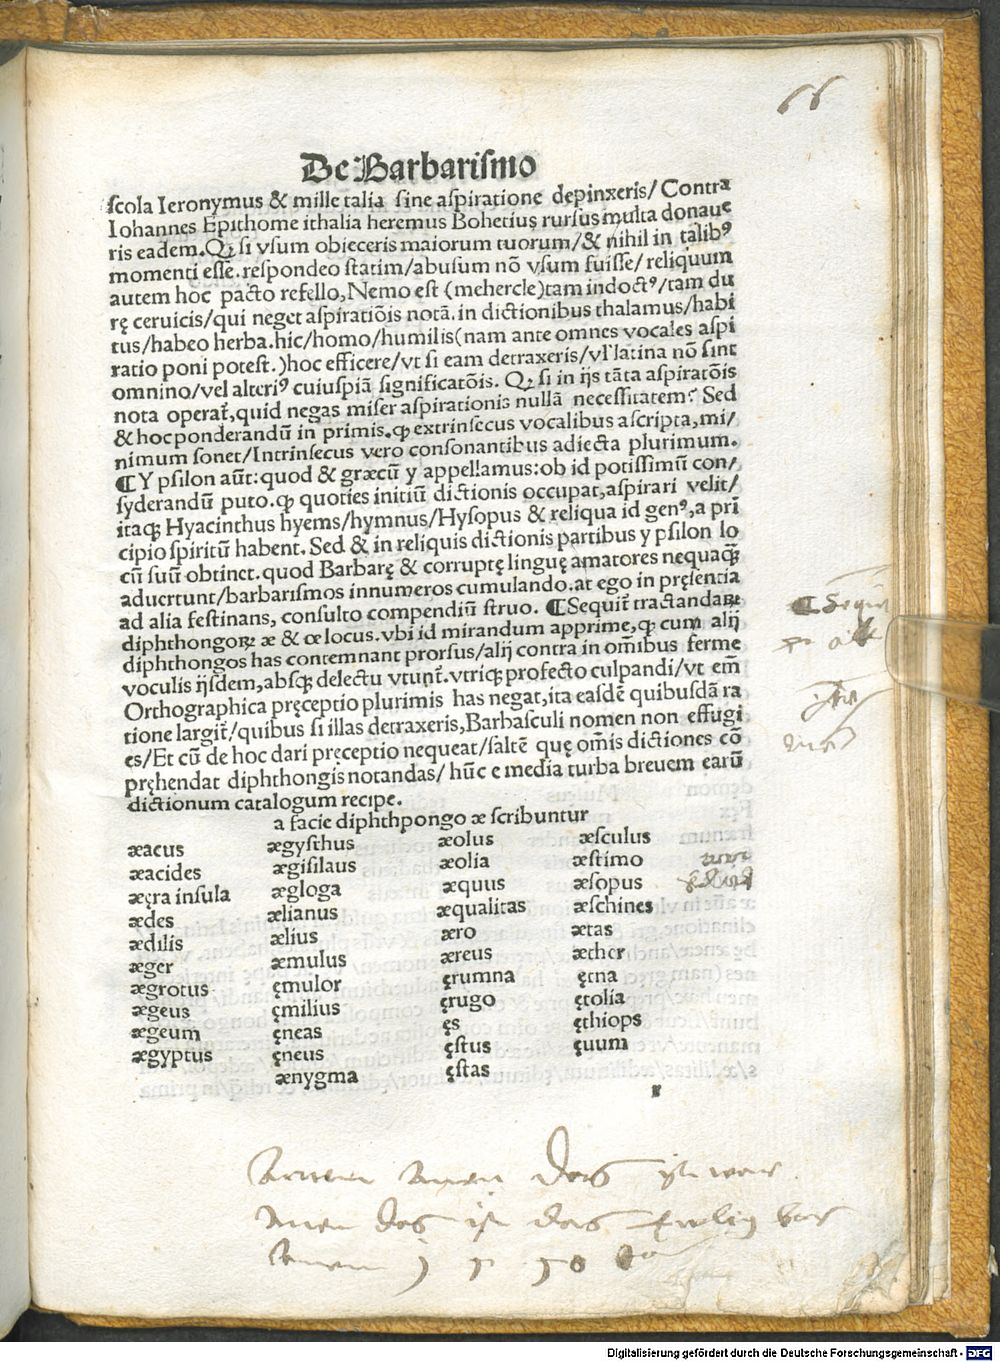 De Barbarismo
scola Ieronymus & mille talia sine aspiratione depinxeris/Contra
Iohannes Epithome ithalia heremus Bohetius rursus multa donaue
ris eadem.Qꝫ si vsum obieceris maiorum tuorum/& nihil in talibꝰ
momenti esse.respondeo statim/abusum nō vsum fuisse/reliquum
autem hoc pacto refello,Nemo est (mehercle)tam indoctꝰ/tam du
rę ceruicis/qui neget aspiratiōis notā.in dictionibus thalamus/habi
tus/habeo herba.hic/homo/humilis(nam ante omnes vocales aspi
ratio poni potest.)hoc efficere/vt si eam detraxeris/vl' latina nō sint
omnino/vel alteriꝰ cuiuspiā significatōis. Qꝫ si in ijs tāta aspiratōis
nota operat̃,quid negas miser aspirationis nullā necessitatem? Sed
& hoc ponderandū in primis.ꝙ extrinsecus vocalibus ascripta,mi/
nimum sonet/Intrinsecus vero consonantibus adiecta plurimum.
¶Y psilon aūt:quod & græcū y appellamus:ob id potissimū con/
syderandū puto.ꝙ quoties initiū dictionis occupat,aspirari velit/
itaqꝫ Hyacinthus hyems/hymnus/Hysopus & reliqua id genꝰ,a pri
cipio spiritū habent. Sed & in reliquis dictionis partibus y psilon lo
cū suū obtinet.quod Barbarę & corruptę linguę amatores nequaꝗ̃
aduertunt/barbarismos innumeros cumulando.at ego in pręsentia
ad alia festinans, consulto compendiū struo. ¶Sequit̃ tractandaꝝ
diphthongoꝝ æ & œ locus.vbi id mirandum apprime,ꝙ cum alij
diphthongos has contemnant prorsus/alij contra in om̄ibus ferme
voculis ijsdem,absqꝫ delectu vtunt̃.vtriqꝫ profecto culpandi/vt em̄
Orthographica pręceptio plurimis has negat,ita easdē quibusdā ra
tione largit̃/quibus si illas detraxeris,Barbasculi nomen non effugi
es/Et cū de hoc dari pręceptio nequeat/saltē quę om̄is dictiones cō
pręhendat diphthongis notandas/hūc e media turba breuem earū
dictionum catalogum recipe.
a facie diphthpongo æ scribuntur
æacus
æacides
æęra insula
ædes
ædilis
æger
ægrotus
ægeus
ægeum
ægyptus
ægysthus
ægisilaus
ægloga
ælianus
ælius
æmulus
ęmulor
ęmilius
ęneas
ęneus
ænygma
æolus
æolia
æquus
æqualitas
æro
æreus
ęrumna
ęrugo
ęs
ęstus
ęstas
æsculus
æstimo
æsopus
æschines
ætas
æther
ętna
ętolia
ęthiops
ęuum